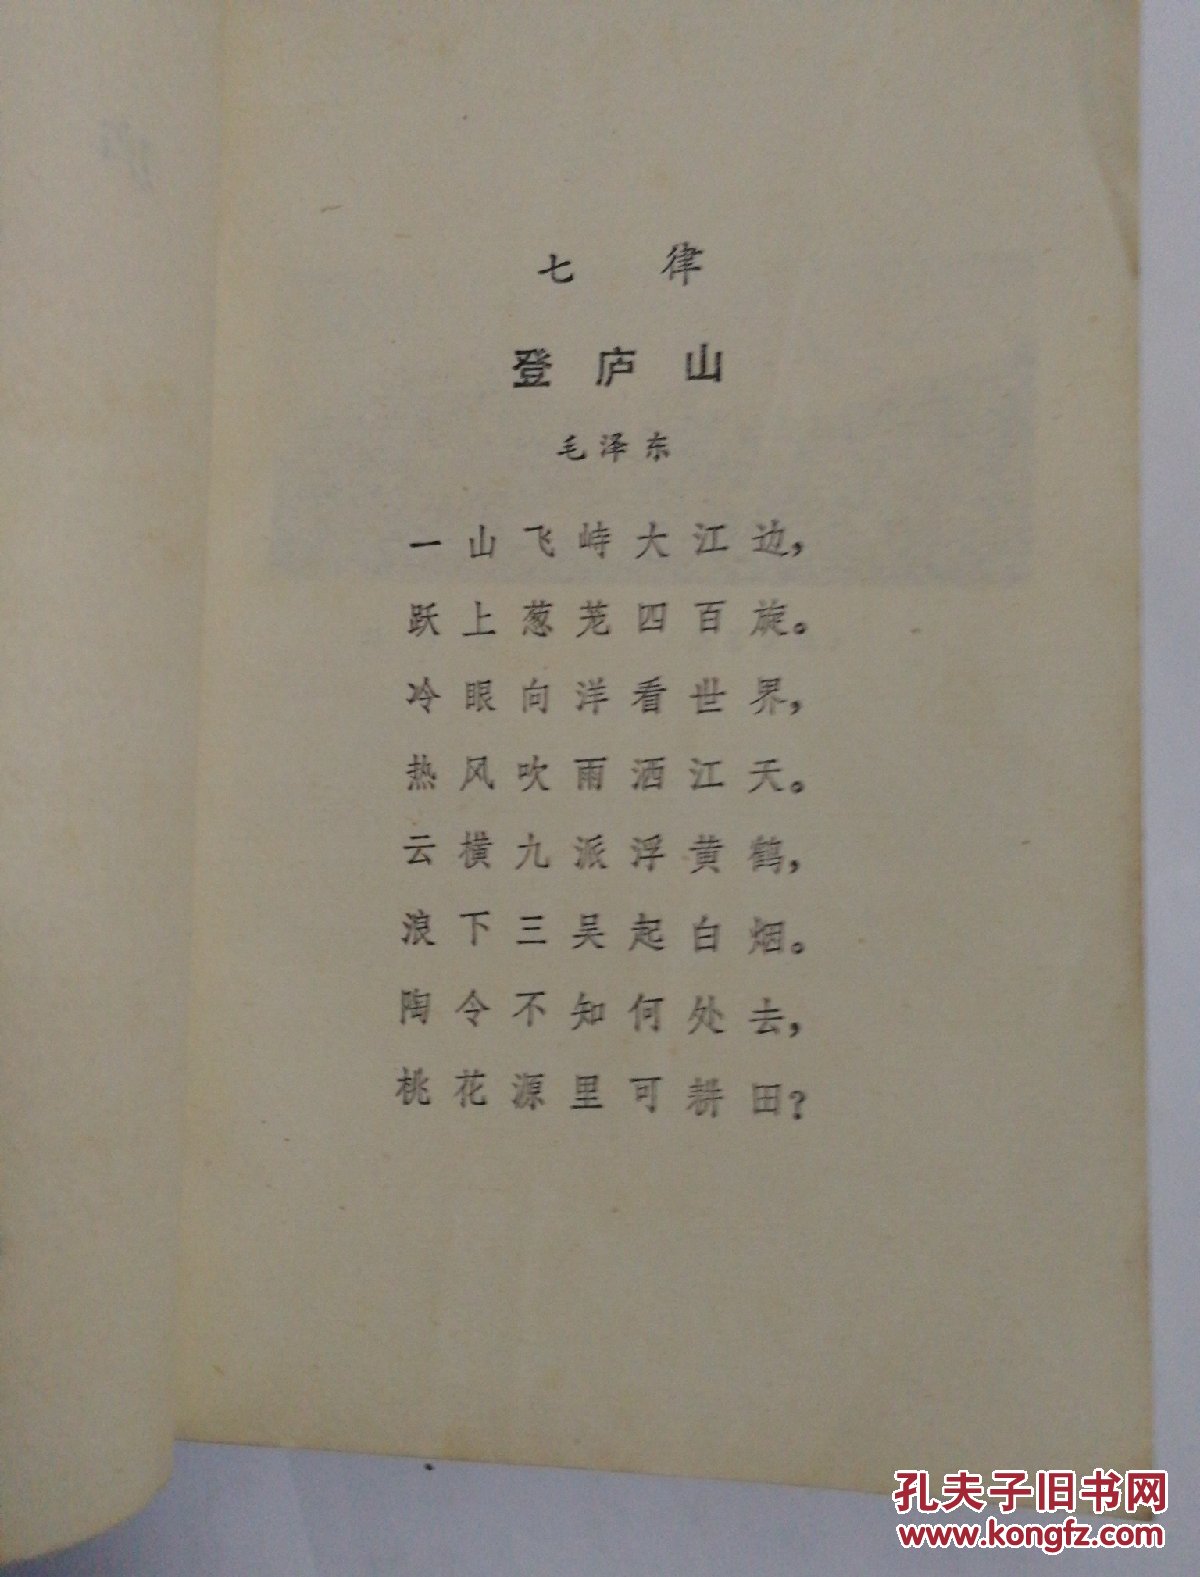 七 律
登庐山
毛泽东
一山飞峙大江边，
跃上葱茏四百旋。
冷眼向洋看世界，
热风吹雨洒江天。
云横九派浮黄鹤，
浪下三吴起白烟。
陶令不知何处去，
桃花源里可耕田？
孔夫子旧书网
www.kongfz.com